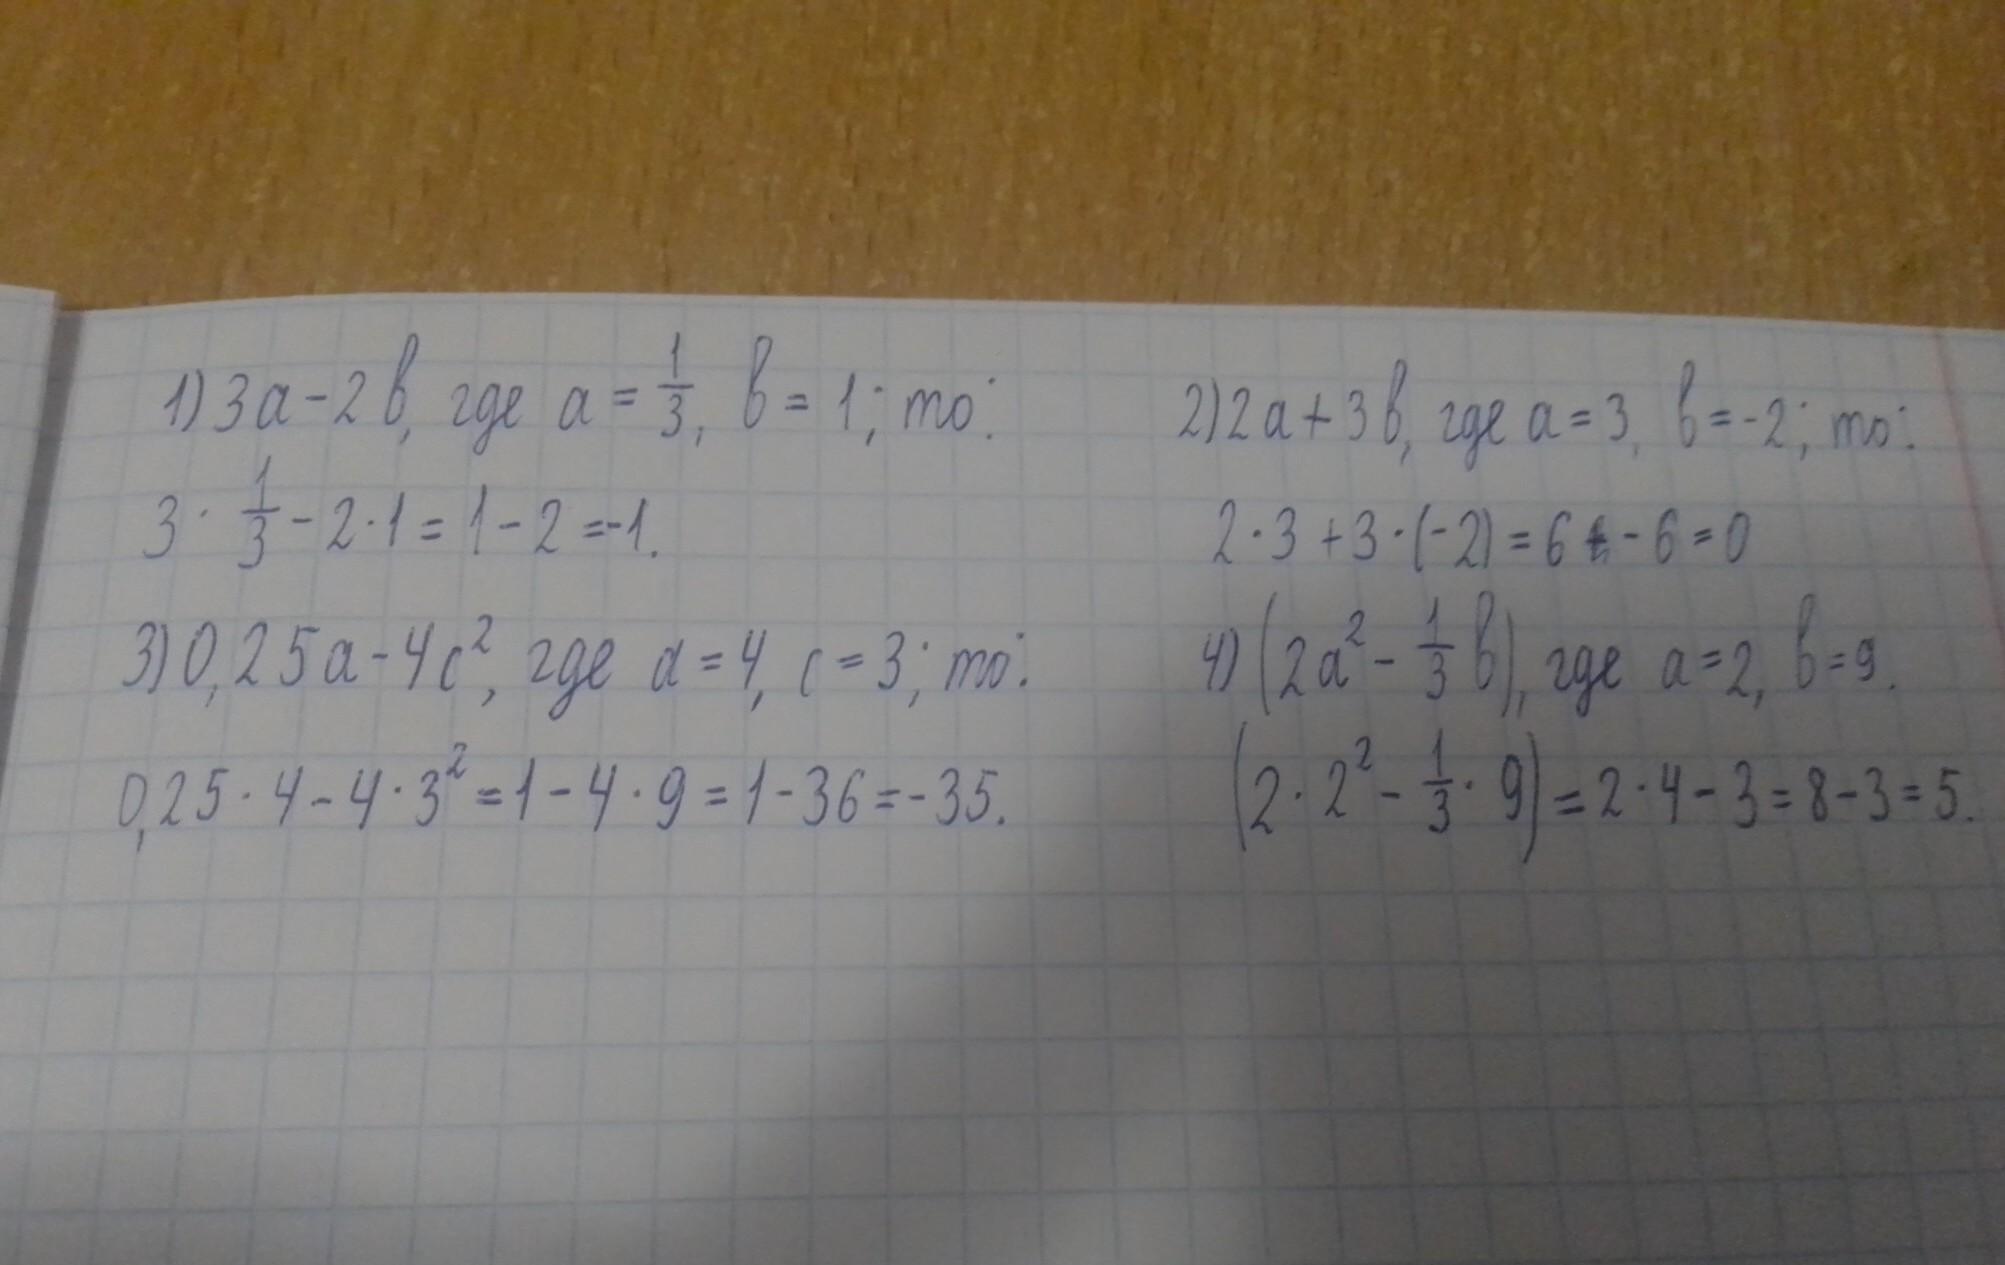 1) 3a - 2b, где a = 1/3, b = 1; то:
3 · 1/3 - 2 · 1 = 1 - 2 = -1.
3) 0,25a - 4c², где a = 4, c = 3; то:
0,25 · 4 - 4 · 3² = 1 - 4 · 9 = 1 - 36 = -35.
2) 2a + 3b, где a = 3, b = -2; то:
2 · 3 + 3 · (-2) = 6 - 6 = 0
4) (2a² - 1/3 b), где a = 2, b = 9.
(2 · 2² - 1/3 · 9) = 2 · 4 - 3 = 8 - 3 = 5.